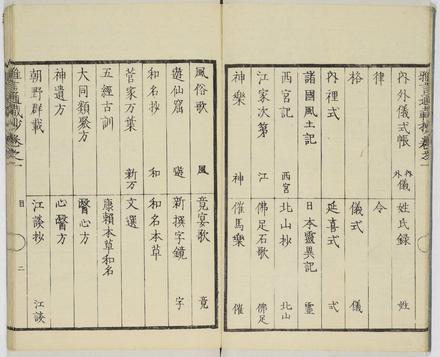 内外儀式帳 内外儀 姓氏録 姓
律 令
格 儀式 儀
内裡式 延喜式 式
諸國風土記 日本靈異記 靈
西宮記 西宮 北山抄 北山
江家次第 江 佛足石歌 佛足
神樂 神 催馬樂 催
風俗歌 風 竟宴歌 竟
遊仙窟 遊 新撰字鏡 字
和名抄 和名本草
菅家万葉 新万 文選
五經古訓 康頼本草和名
大同類聚方 醫心方
神遺方 心醫方
朝野群載 江談抄 江談
雅言通載抄 巻之一 目 二